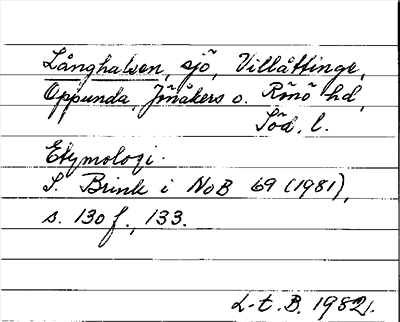 Långhalsen, sjö, Villåttinge,
Oppunda, Jönåkers o. Rönö hd,
Söd. l.
Etymologi.
S. Brink i NoB 69 (1981),
s. 130 f., 133.
L-t. B. 1982.